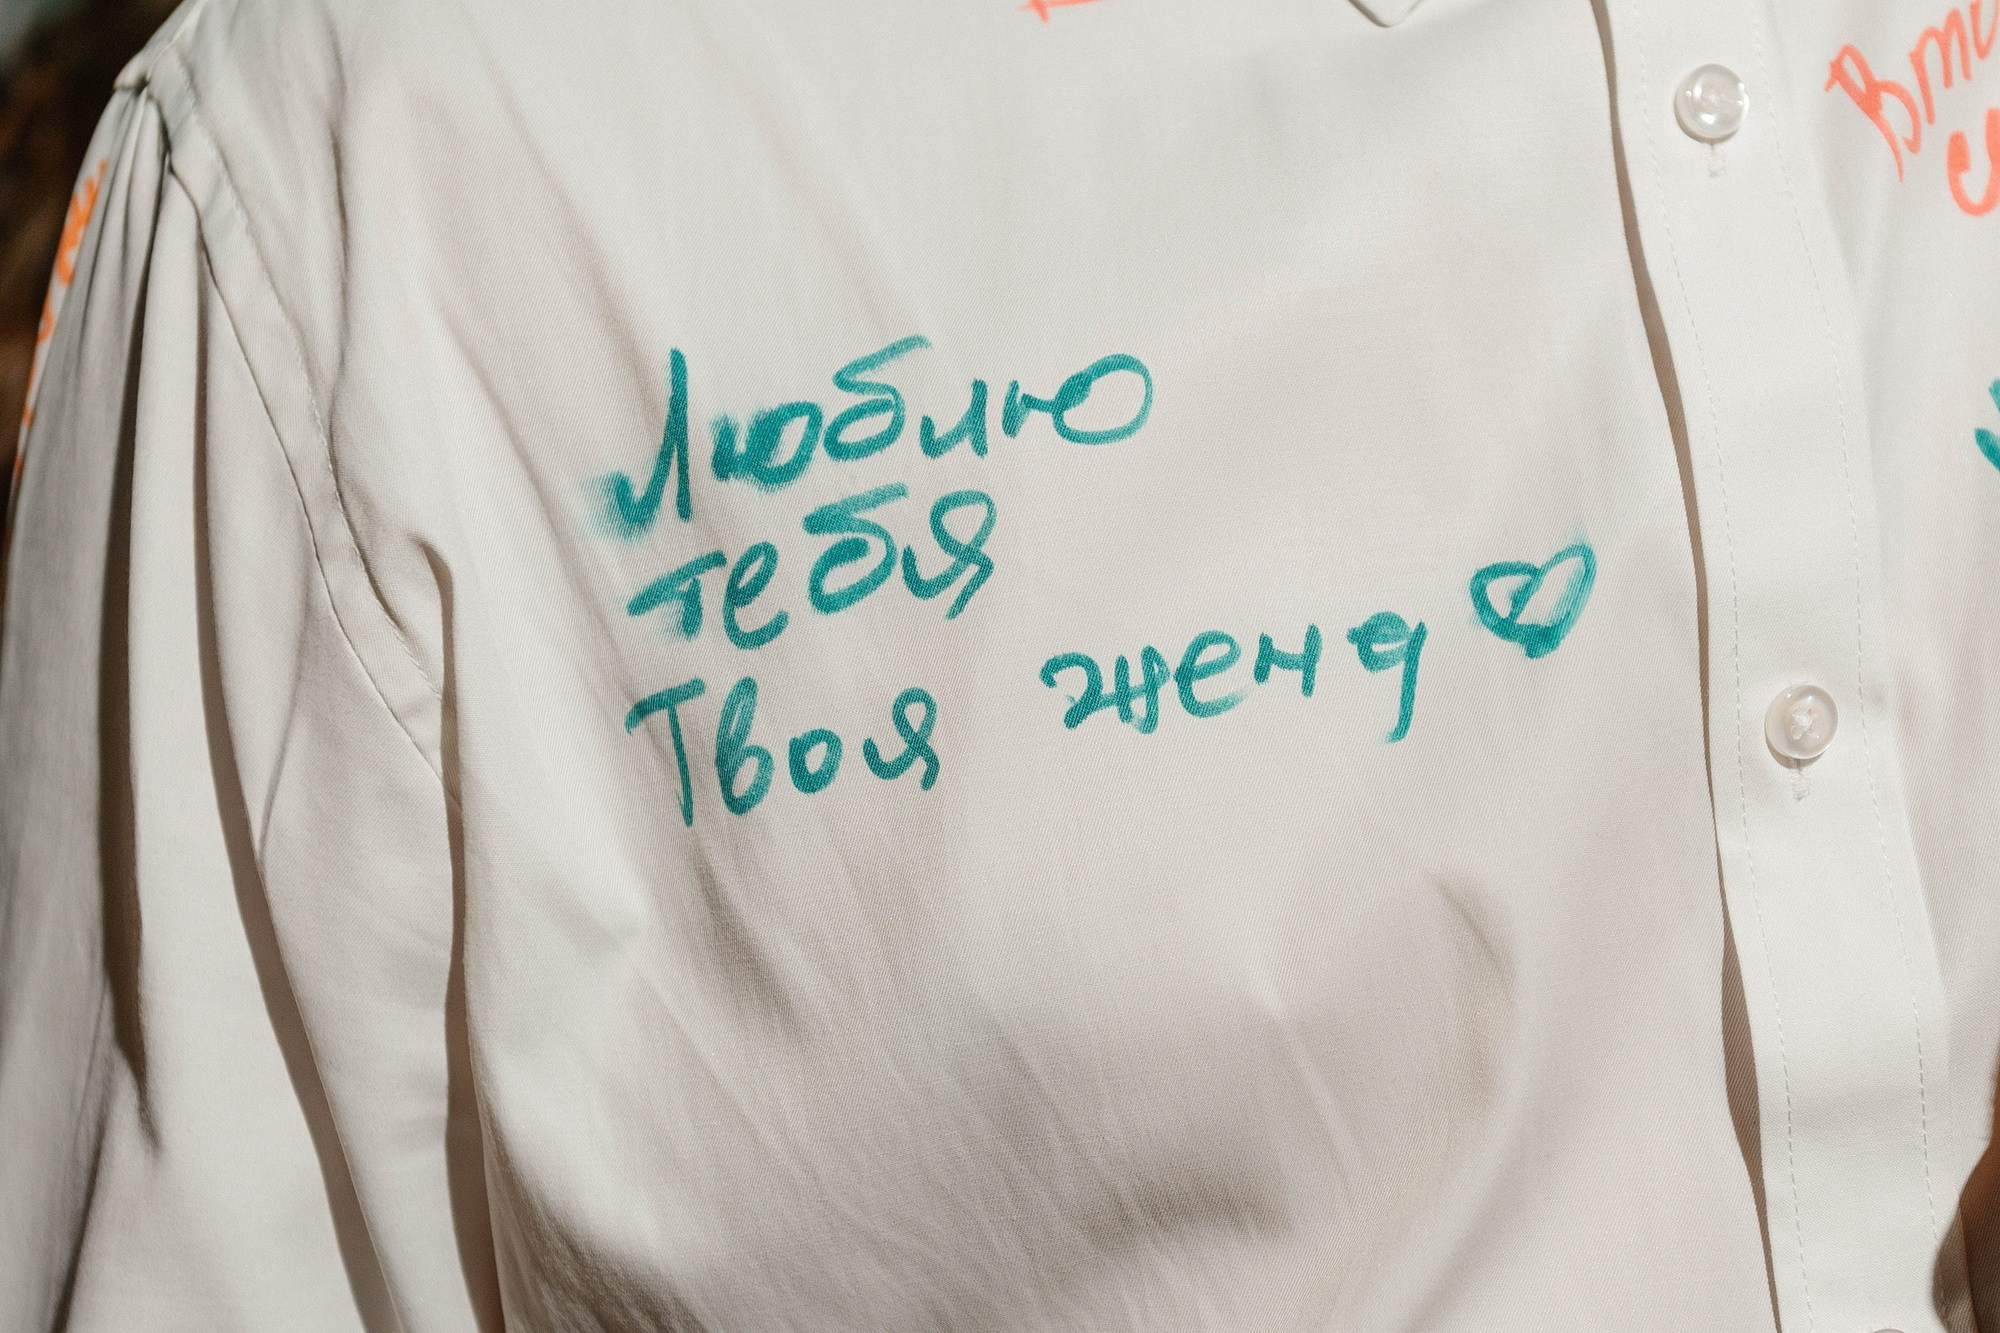 Люблю
тебя
Твоя жена